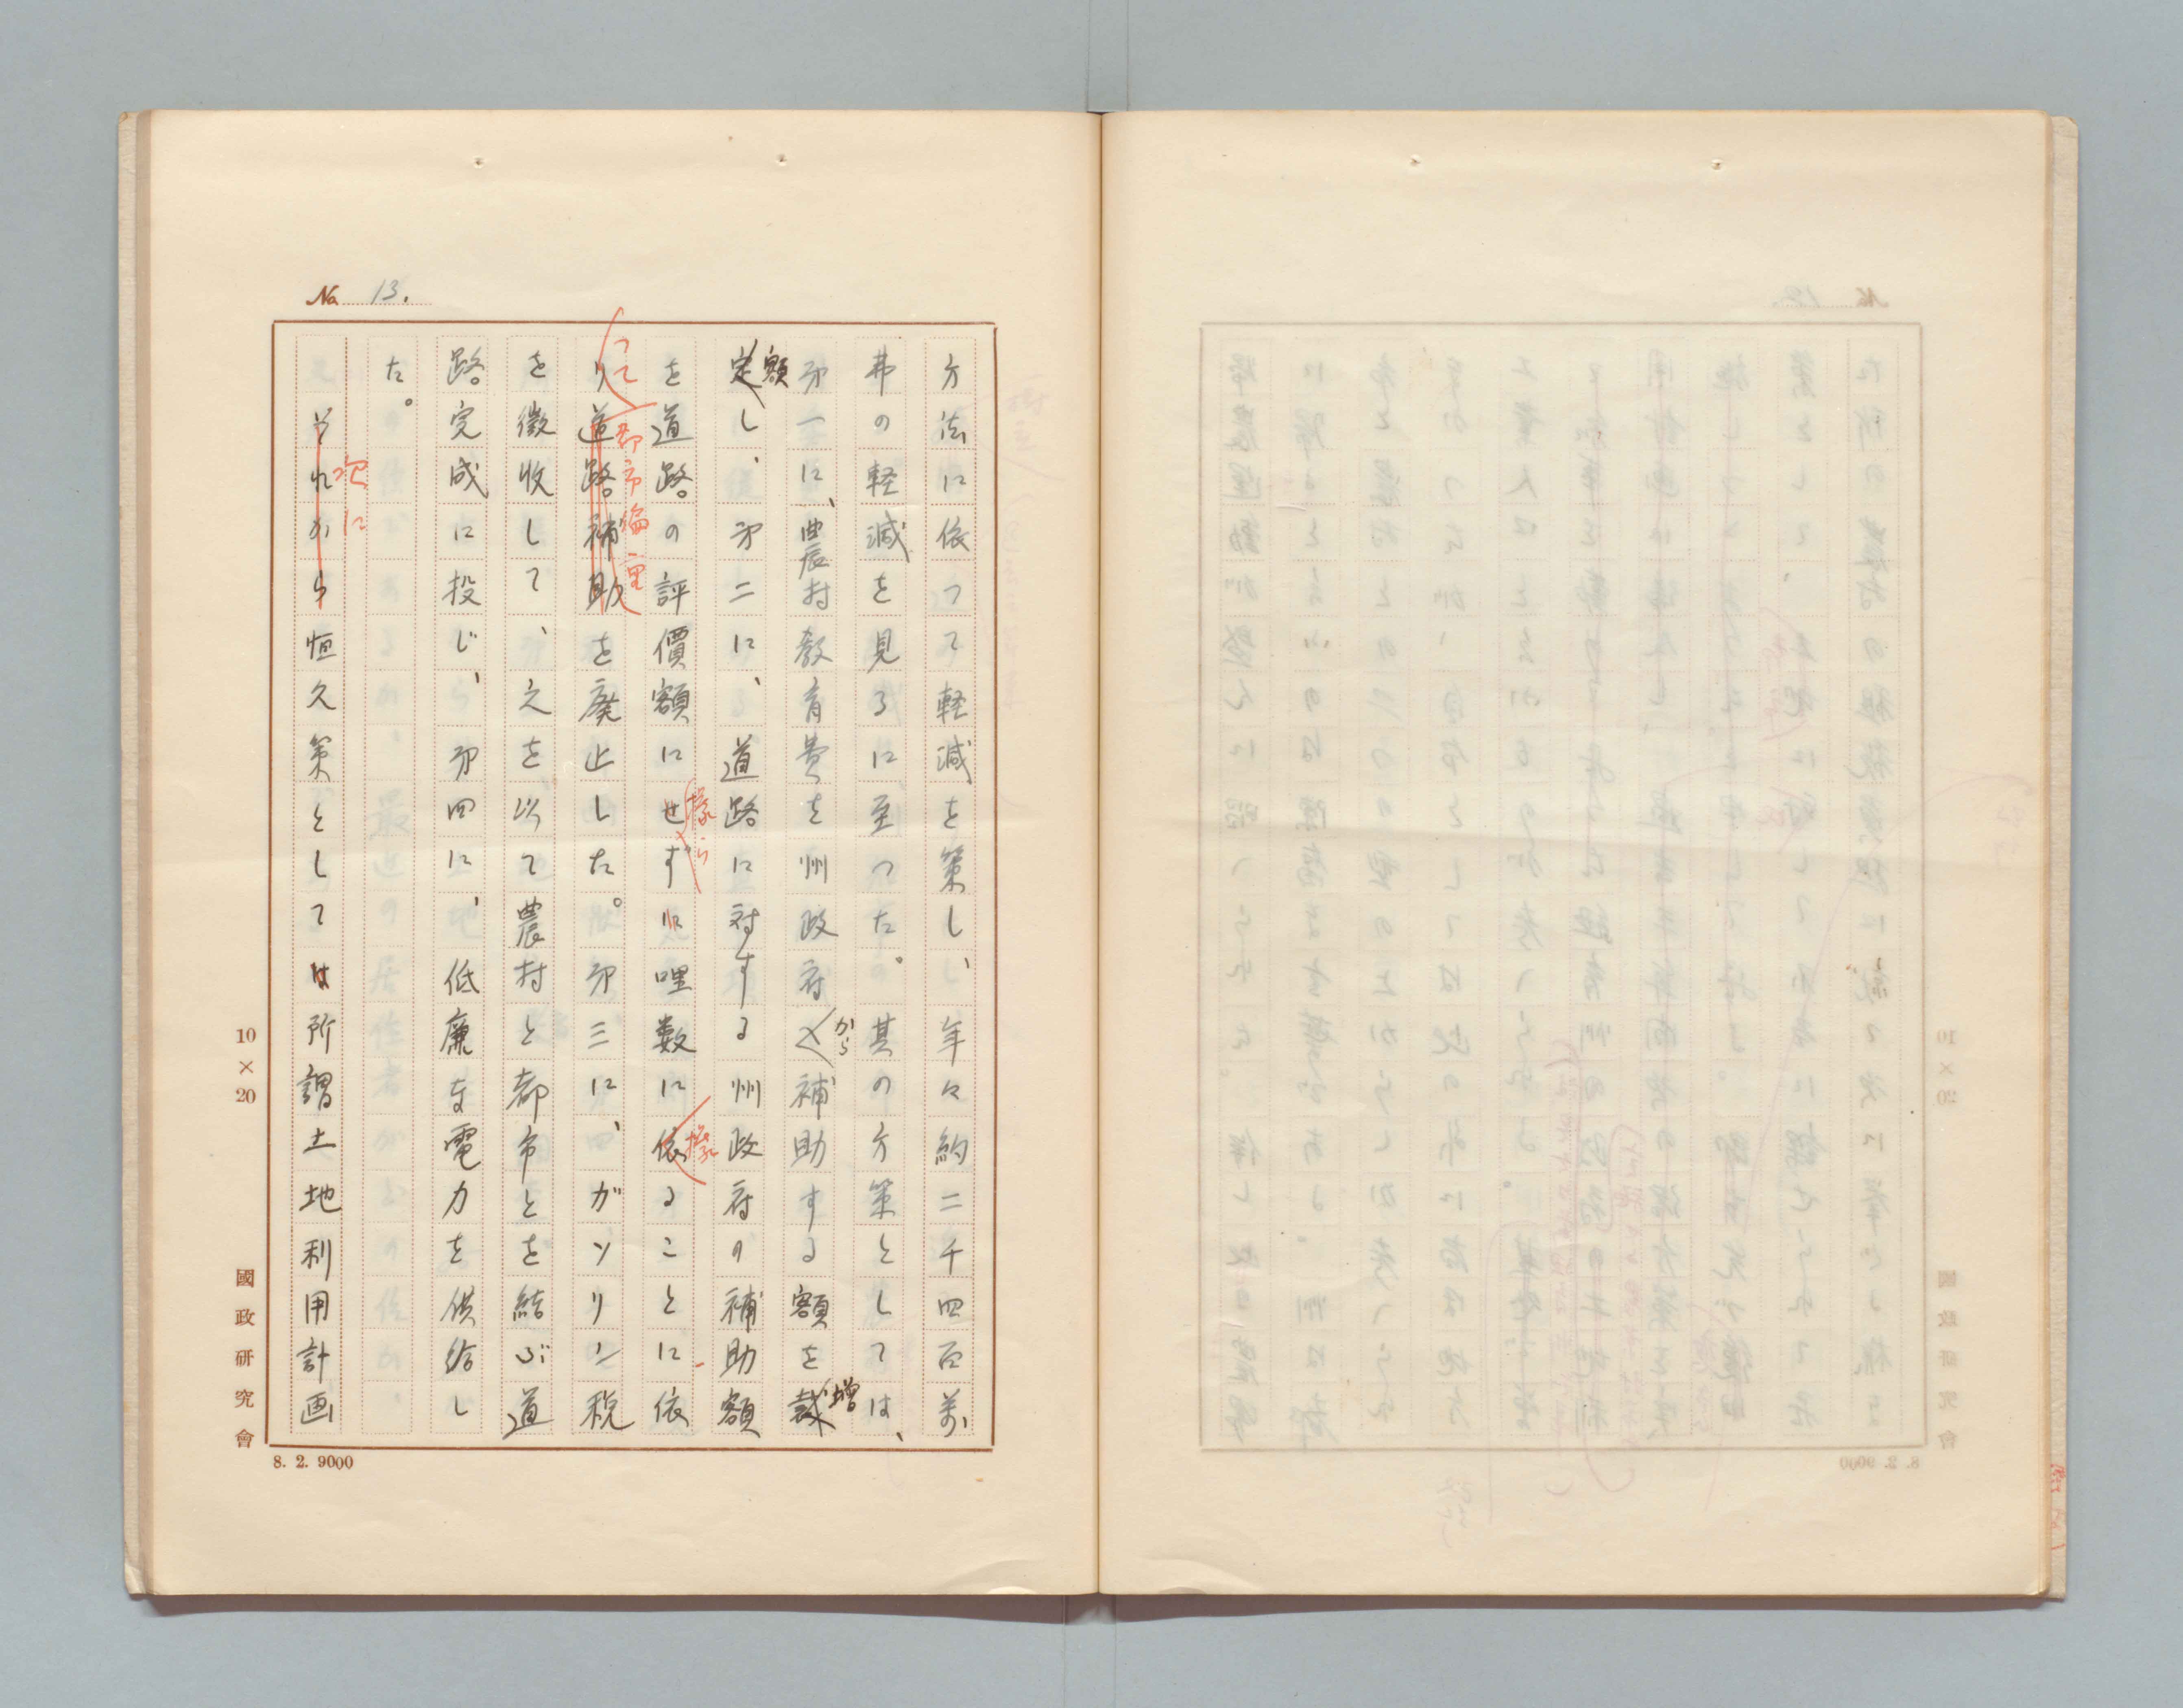 No 13.
方法に依つて軽減を策し、年々約二千四百萬
弗の軽減を見るに至つた。其の方策としては、
㐧一に、農村教育費を州政府から補助する額を増
額し、㐧二に、道路に対する州政府の補助額
を道路の評價額に據らず哩数に據ることに依
つて都市偏重を廃止した。㐧三に、ガソリン税
を徴収して、之を以て農村と都市とを結ぶ道
路完成に投じ、㐧四に、低廉な電力を供給し
た。
次に恒久策としては所謂土地利用計画
10×20
國政研究會
8. 2. 9000